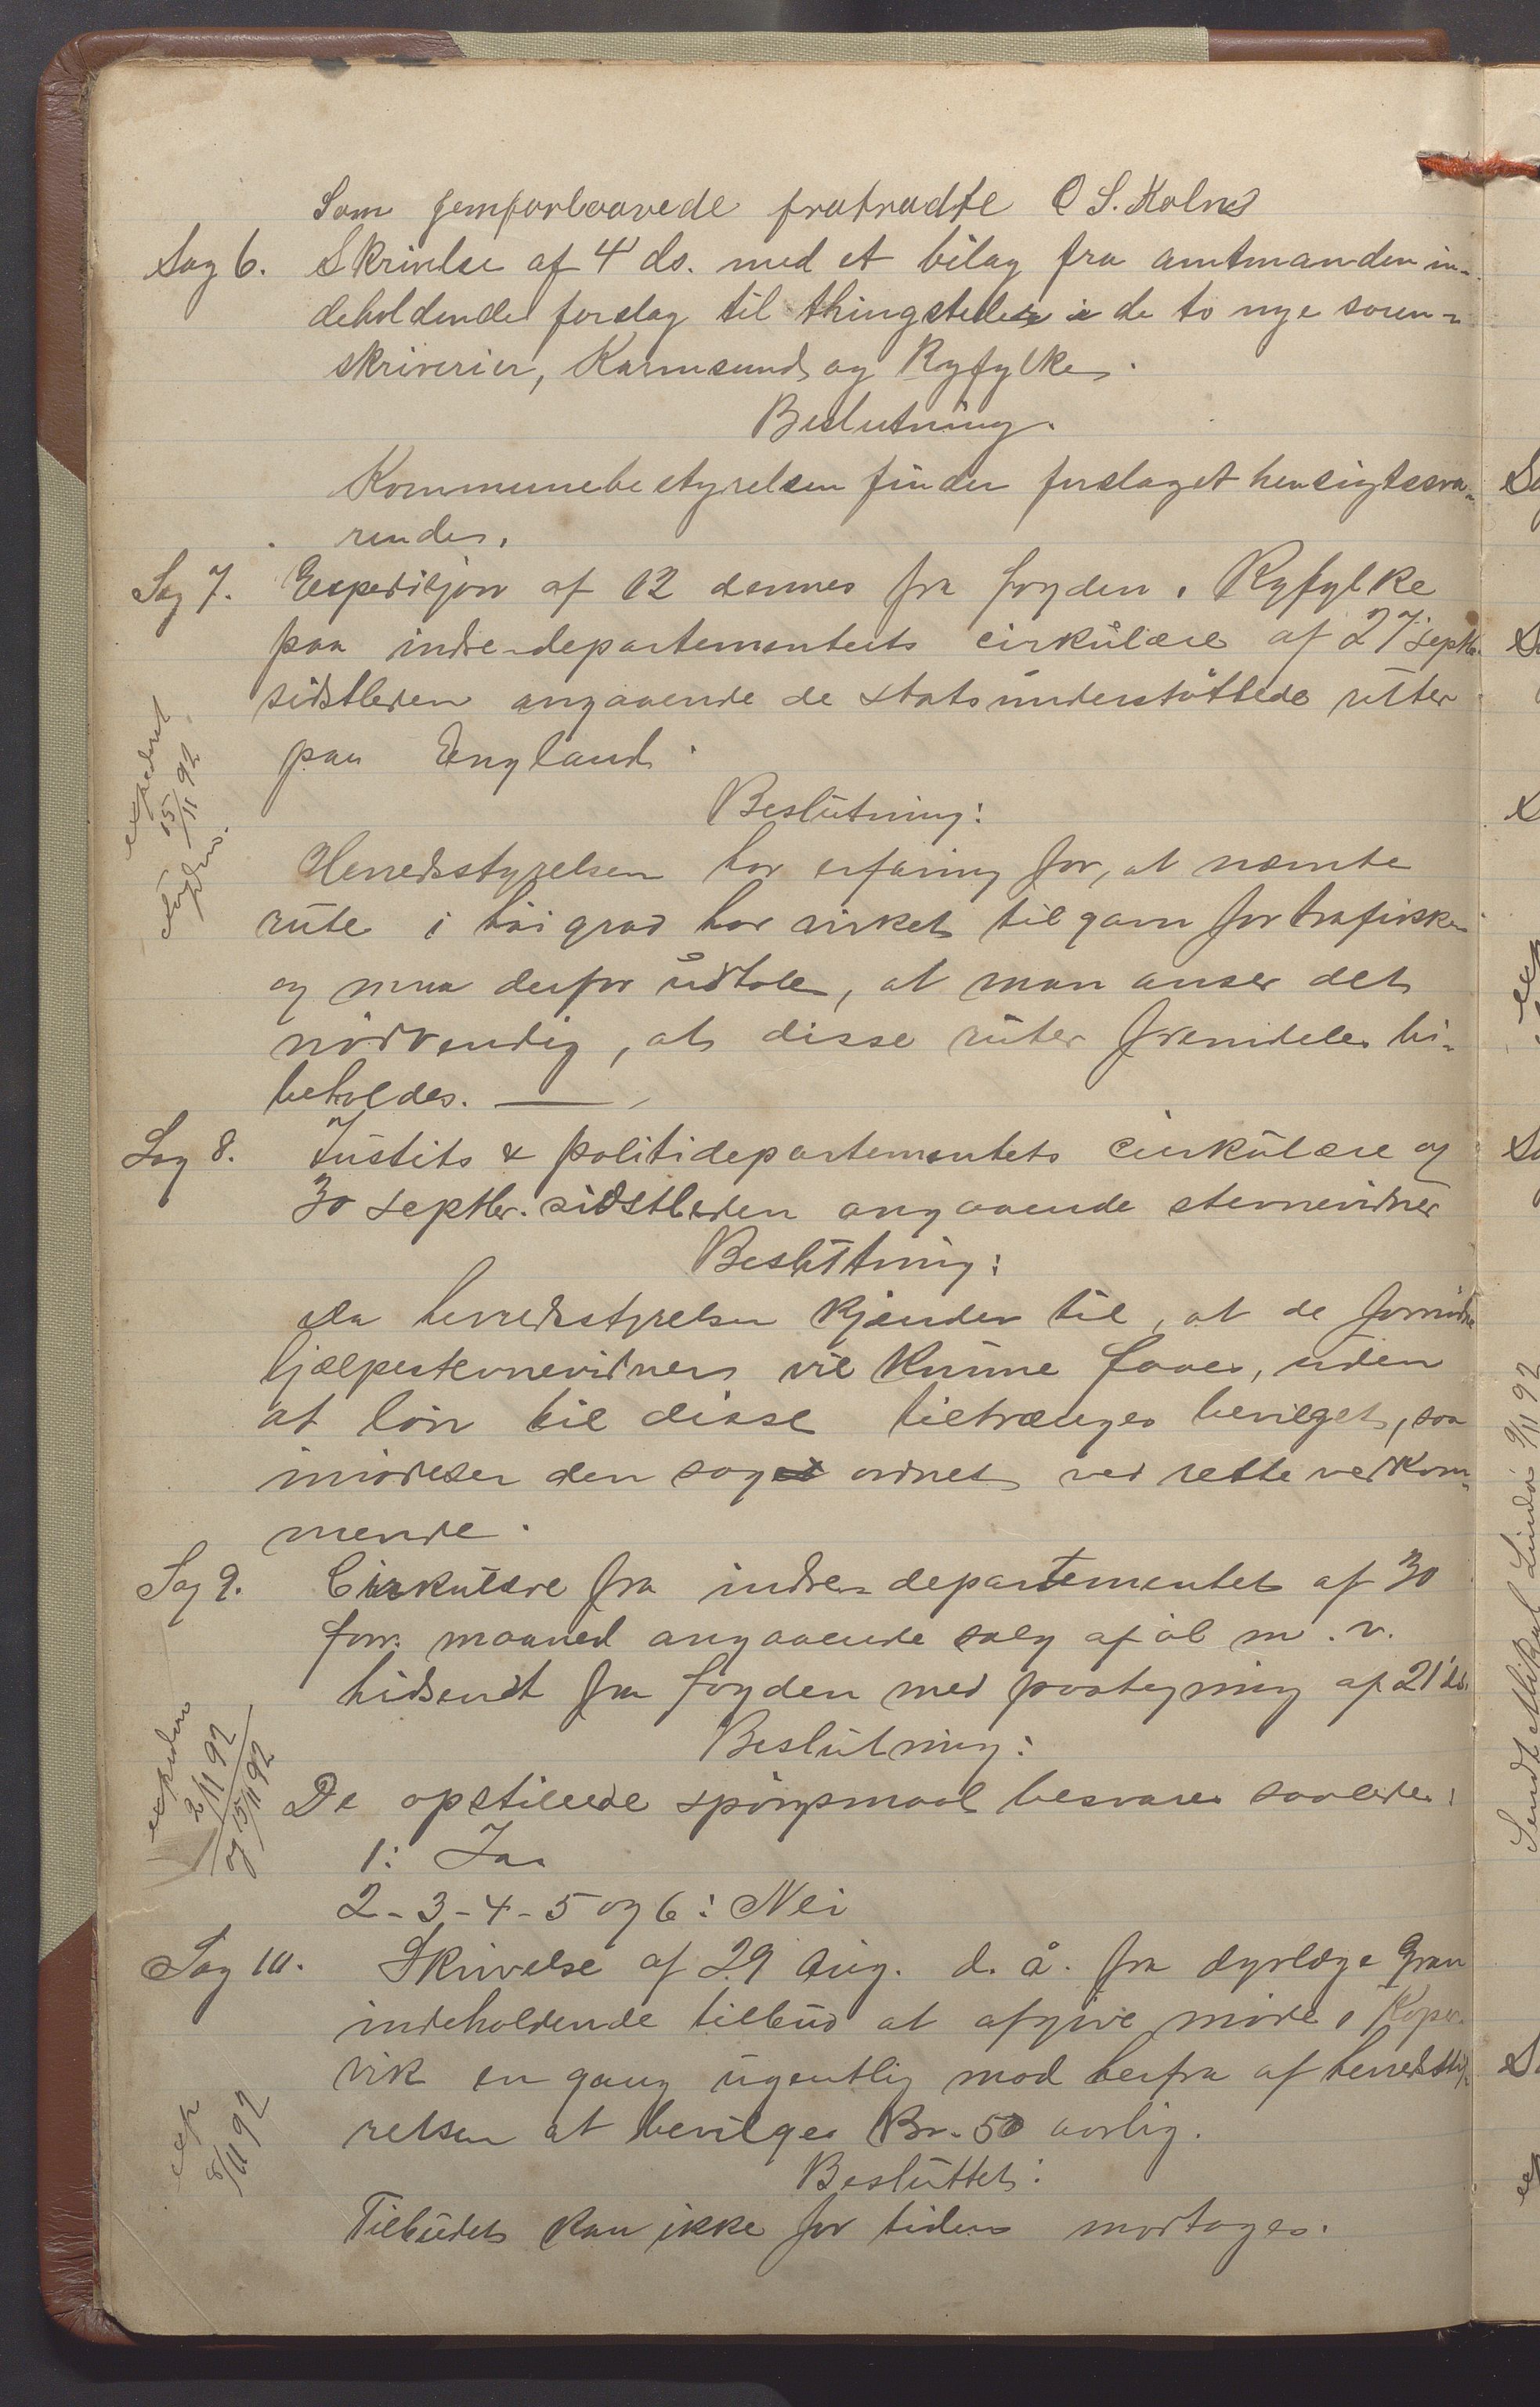 Som jemforbaavede fratraadte O S. Kolnes
Sag 6. Skrivelse af 4' ds. med et bilag fra amtmanden in-
deholdende forslag til thingsteder i de to nye soren-
skriverier, Karmsund og Ryfylke.
Beslutning.
Kommunebestyrelsen finder forslaget hensigtssva-
rende.
Sag 7. Expedisjon af 12 dennes fra fogden i Ryfylke
paa indre-departementets cirkulære af 27 septbr.
sidstleden angaaende de statsunderstøttede ruter
paa England.
expederet
15/11 92
fogden.
Beslutning:
Herredsstyrelsen har erfaring for, at nævnte
rute i høi grad har virket til gavn for trafikken
og maa derfor udtale, at man anser det
nødvendig, at disse ruter fremdeles bi-
beholdes.
Sag 8. Justits & politidepartementets cirkulære og
30 septbr. sidstleden angaaende stevnevidner
Beslutning:
Da herredsstyrelsen kjender til, at de fornødne
hjælpestevnevidner vil kunne faaes, uden
at løn til disse tiltrænges bevilget, saa
imødeser den sag ordnet ved rette vedkom-
mende.
Sag 9. Cirkulære fra indre-departementet af 30
forr. maaned angaaende salg af øl m. v.
hidsendt fra fogden med paategning af 21' ds.
Beslutning:
expedere
2/11 92
og 15/11 92
De opstillede spørgsmaal besvares saaledes:
1: Ja
2-3-4-5 og 6: Nei
Sag 10. Skrivelse af 29 Aug. d. å. fra dyrlæge Gran
indeholdende tilbud at afgive møde i Koper-
vik en gang ugentlig mod herfra af herredsty-
relsen at bevilges Kr. 50 aarlig.
exp
8/11 92
Besluttet:
Tilbudet kan ikke for tiden modtages.
Sendt Mikal Lindø 9/11 92